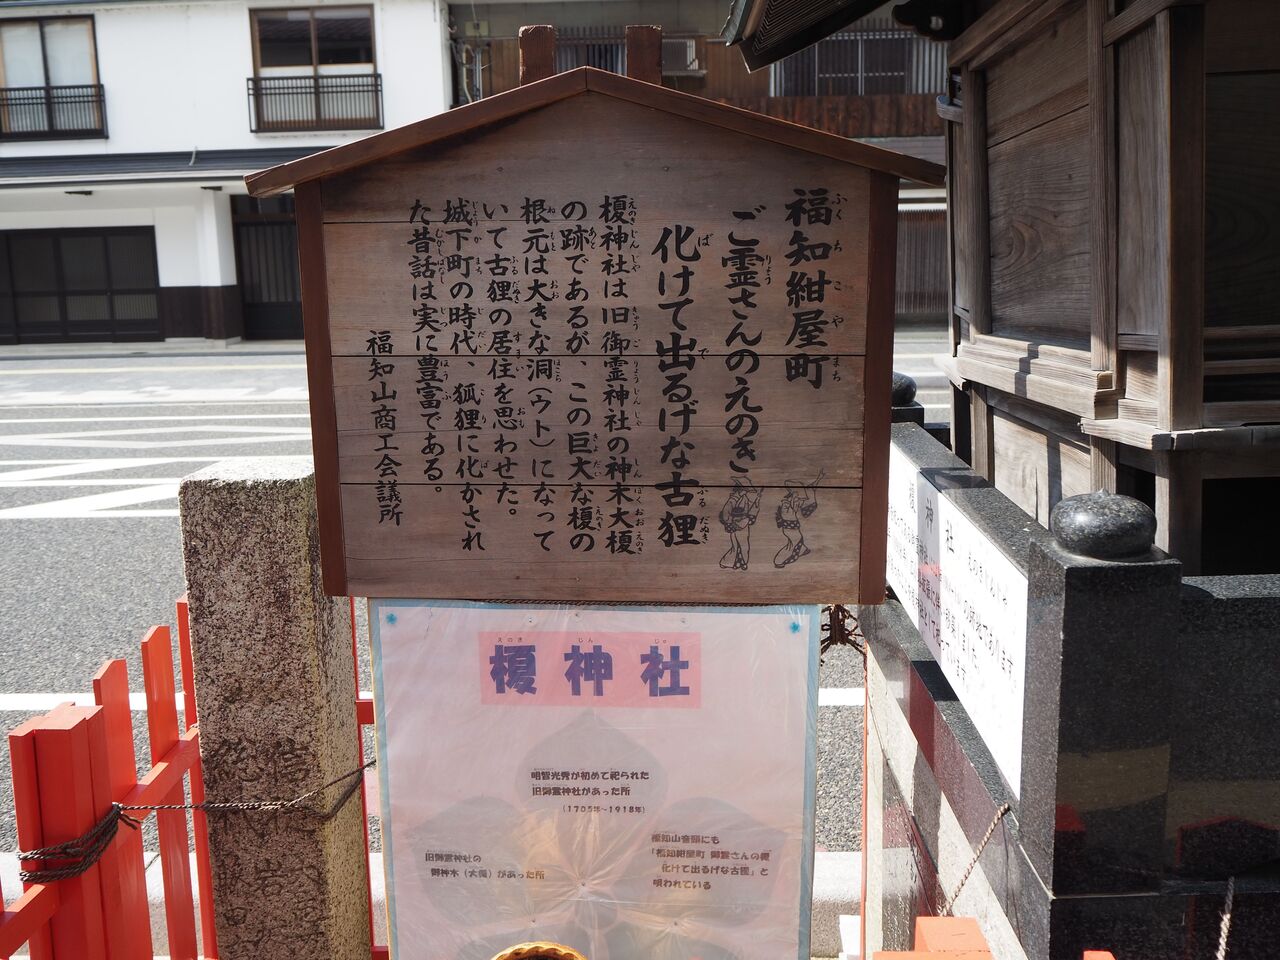 福知紺屋町
ご霊さんのえのき
化けて出るげな古狸
榎神社は旧御霊神社の神木大榎
の跡であるが、この巨大な榎の
根元は大きな洞(ウト)になって
いて古狸の居住を思わせた。
城下町の時代、狐狸に化かされ
た昔話は実に豊富である。
福知山商工会議所
榎神社
明智光秀が初めて祀られた
旧御霊神社があった所
(1705年~1918年)
旧御霊神社の
御神木(大榎)があった所
福知山音頭にも
「福知紺屋町 御霊さんの榎
化けて出るげな古狸」と
唄われている
榎神社